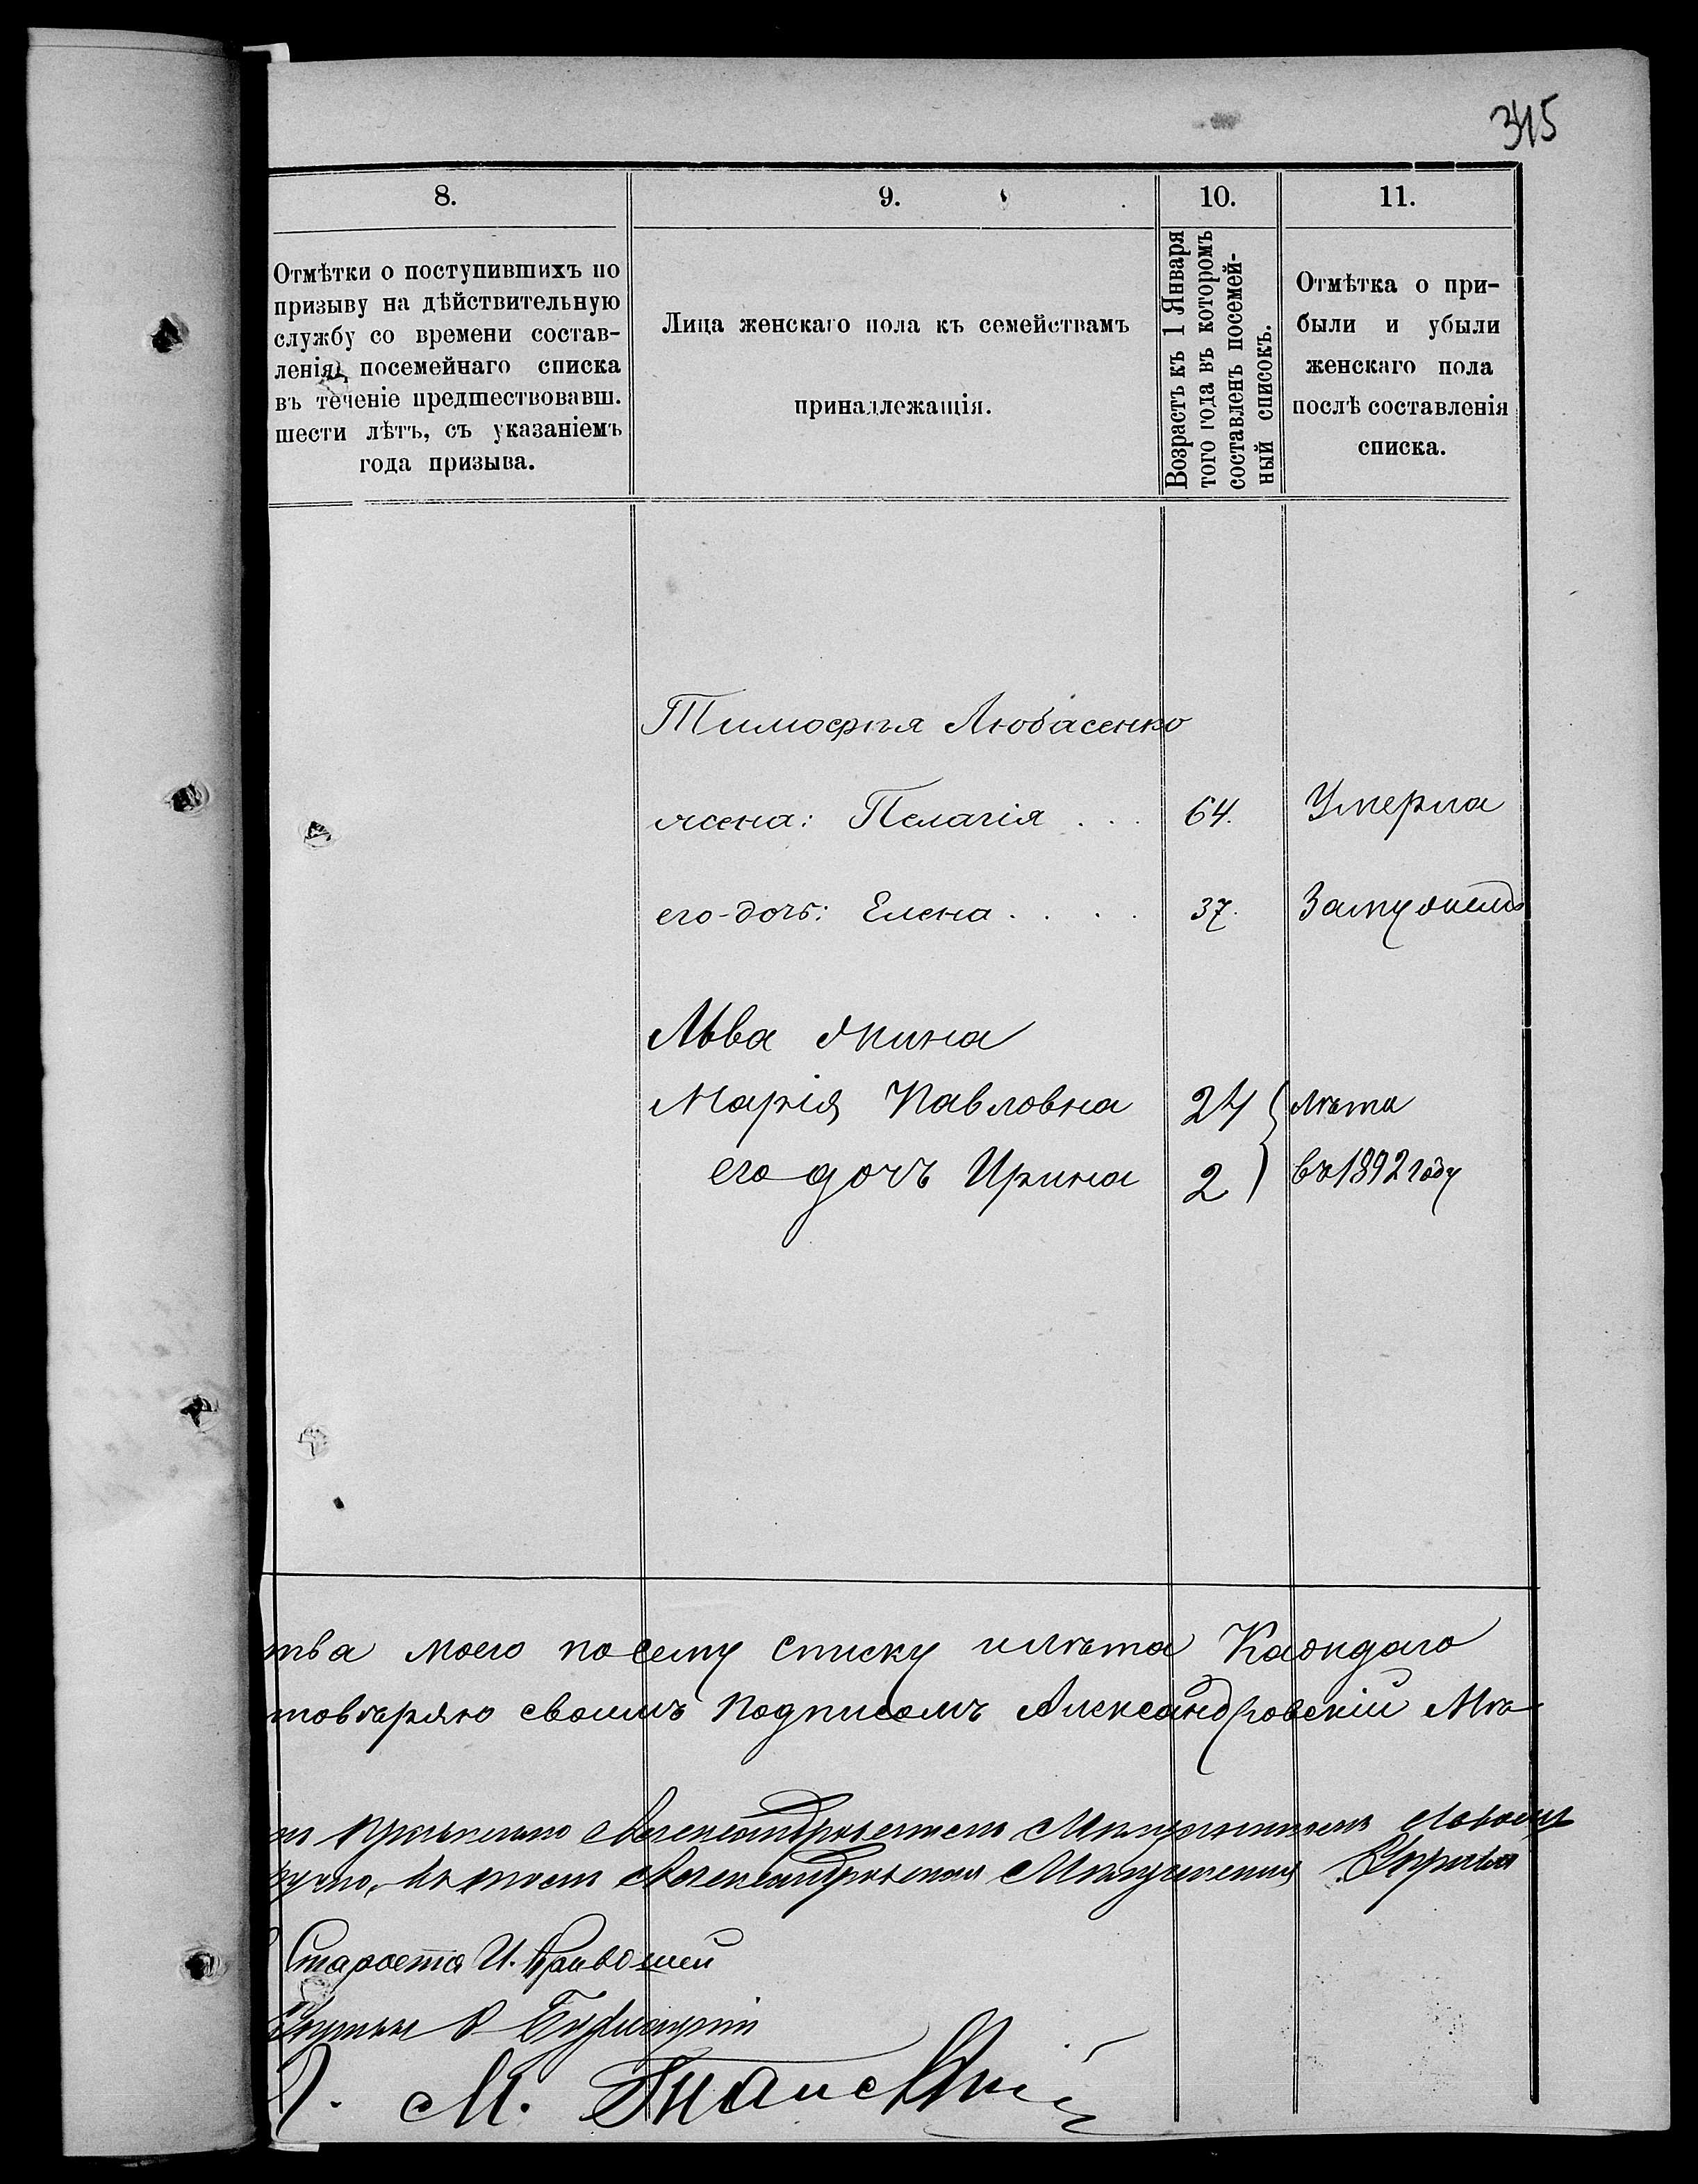 345
8.
Отмѣтки о поступившихъ по
призыву на дѣйствительную
службу со времени состав-
ленія посемейнаго списка
въ теченіе предшествовавш.
шести лѣтъ, съ указаніемъ
года призыва.
9.
Лица женскаго пола къ семействамъ
принадлежащія.
10.
Возрастъ къ 1 Января
того года въ которомъ
составленъ посемей-
ный списокъ.
11.
Отмѣтка о при-
были и убыли
женскаго пола
послѣ составленія
списка.
Тимофѣя Любасенко
жена: Пелагія . . . 64. Умерла
его-дочь: Елена . . . . 37. Замужемъ
Льва жина
Марія Павловна 24 лѣта
его дочъ Ирина 2 въ 1892 году
тва моего по сему списку и лѣта Каждаго
товѣряю своимъ подписомъ Александровскій Мѣ-
Староста И.
М.